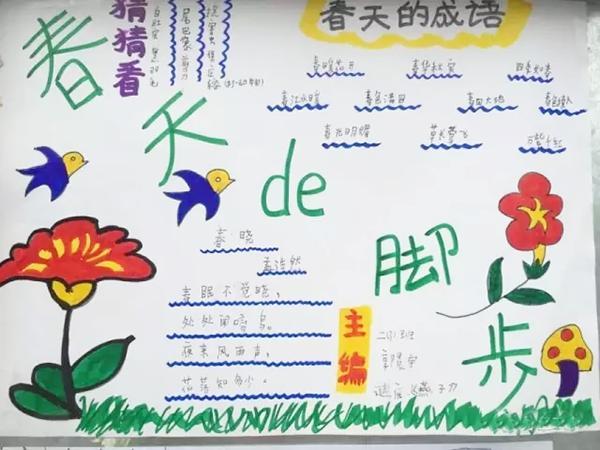 春天de脚步
猜猜看
尾巴像剪刀
春天的成语
春暖花开 春华秋实 四季如春
春江水暖 春色满园 春回大地
春光明媚 草长莺飞 万紫千红
春晓
孟浩然
春眠不觉晓，
处处闻啼鸟。
夜来风雨声，
花落知多少。
主编